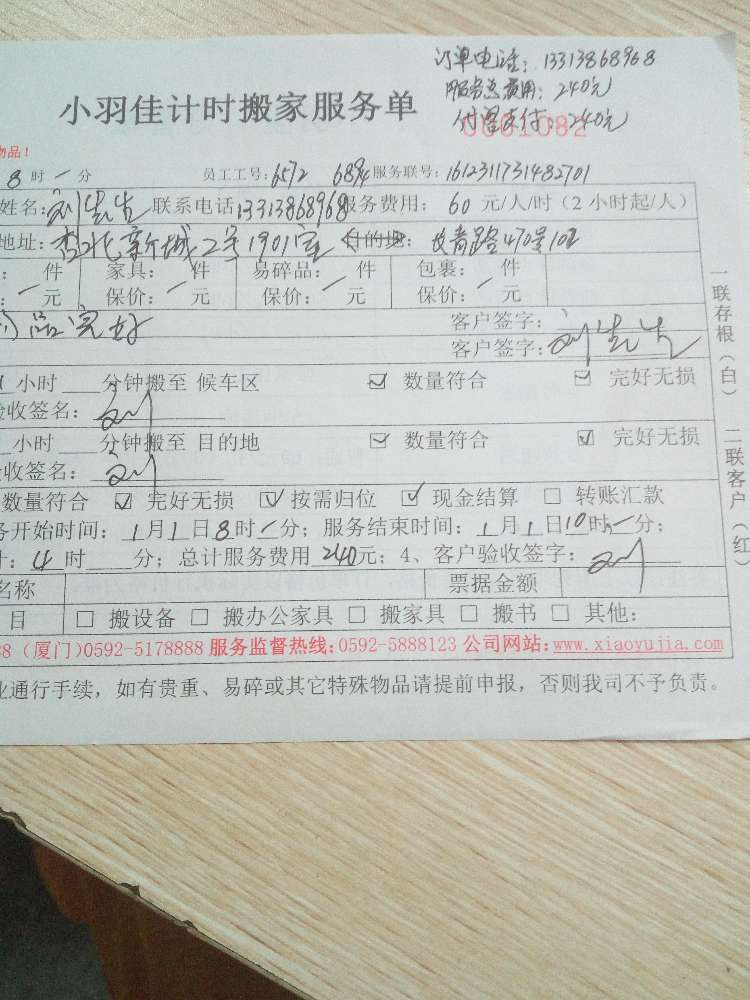 订单电话：13313868968
服务总费用：240元
付客支付：240元
小羽佳计时搬家服务单
0001082
物品！
8 时 一 分 员工工号：6572 6894 服务联号：1612311731482701
姓名：刘先生 联系电话 13313868968 服务费用：60 元/人/时（2 小时起/人）
地址：杏北新城2号1901室 目的地：文青路470号102
： 件 家具： 件 易碎品： 件 包裹： 件
：一元 保价：一元 保价：一元 保价：一元
品完好 客户签字：
客户签字：刘先生
1 小时 分钟搬至 候车区 ☑ 数量符合 ☑ 完好无损
收签名：刘
小时 分钟搬至 目的地 ☑ 数量符合 ☑ 完好无损
收签名：刘
数量符合 ☑ 完好无损 ☑ 按需归位 ☑ 现金结算 □ 转账汇款
务开始时间：1月1日8时一分；服务结束时间：1月1日10时一分；
：4 时 分；总计服务费用 240元；4、客户验收签字：刘
名称 票据金额
目 □ 搬设备 □ 搬办公家具 □ 搬家具 □ 搬书 □ 其他：
88（厦门）0592-5178888 服务监督热线：0592-5888123 公司网站：www.xiaoyujia.com
业通行手续，如有贵重、易碎或其它特殊物品请提前申报，否则我司不予负责。
一联存根（白） 二联客户（红）